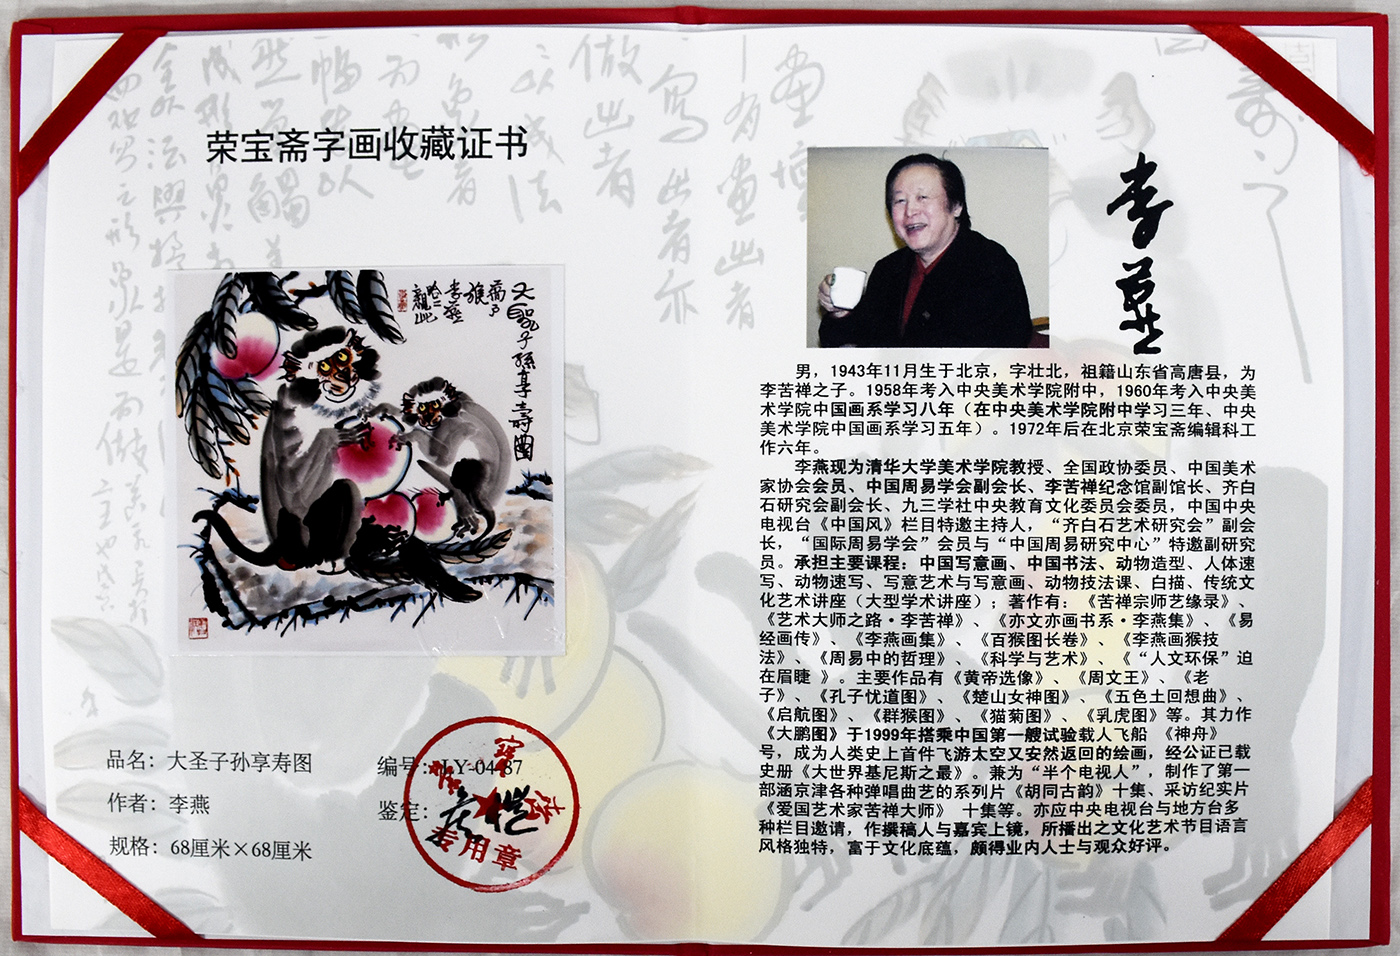 荣宝斋字画收藏证书
大聖子孫享壽圖
品名：大圣子孙享寿图
作者：李燕
规格：68厘米×68厘米
编号：LY-04-87
鉴定：
专用章
李燕
男，1943年11月生于北京，字壮北，祖籍山东省高唐县，为
李苦禅之子。1958年考入中央美术学院附中，1960年考入中央美
术学院中国画系学习八年（在中央美术学院附中学习三年、中央
美术学院中国画系学习五年）。1972年后在北京荣宝斋编辑科工
作六年。
李燕现为清华大学美术学院教授、全国政协委员、中国美术
家协会会员、中国周易学会副会长、李苦禅纪念馆副馆长、齐白
石研究会副会长、九三学社中央教育文化委员会委员，中国中央
电视台《中国风》栏目特邀主持人，“齐白石艺术研究会”副会
长，“国际周易学会”会员与“中国周易研究中心”特邀副研究
员。承担主要课程：中国写意画、中国书法、动物造型、人体速
写、动物速写、写意艺术与写意画、动物技法课、白描、传统文
化艺术讲座（大型学术讲座）；著作有：《苦禅宗师艺缘录》、
《艺术大师之路·李苦禅》、《亦文亦画书系·李燕集》、《易
经画传》、《李燕画集》、《百猴图长卷》、《李燕画猴技
法》、《周易中的哲理》、《科学与艺术》、《“人文环保”迫
在眉睫 》。主要作品有《黄帝选像》、《周文王》、《老
子》、《孔子忧道图》、《楚山女神图》、《五色土回想曲》、
《启航图》、《群猴图》、《猫菊图》、《乳虎图》等。其力作
《大鹏图》于1999年搭乘中国第一艘试验载人飞船 《神舟》
号，成为人类史上首件飞游太空又安然返回的绘画，经公证已载
史册《大世界基尼斯之最》。兼为“半个电视人”，制作了第一
部涵京津各种弹唱曲艺的系列片《胡同古韵》十集、采访纪实片
《爱国艺术家苦禅大师》 十集等。亦应中央电视台与地方台多
种栏目邀请，作撰稿人与嘉宾上镜，所播出之文化艺术节目语言
风格独特，富于文化底蕴，颇得业内人士与观众好评。